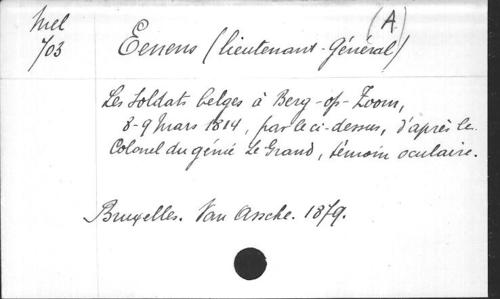 Mel (A)
703 Eenens (lieutenant-Général)
Les Soldats belges à Berg-op-Zoom,
8-9 Mars 1814, par le ci-dessus, d'après le
Colonel du génie Le Grand, témoin oculaire.
Bruxelles. Van Assche. 1879.